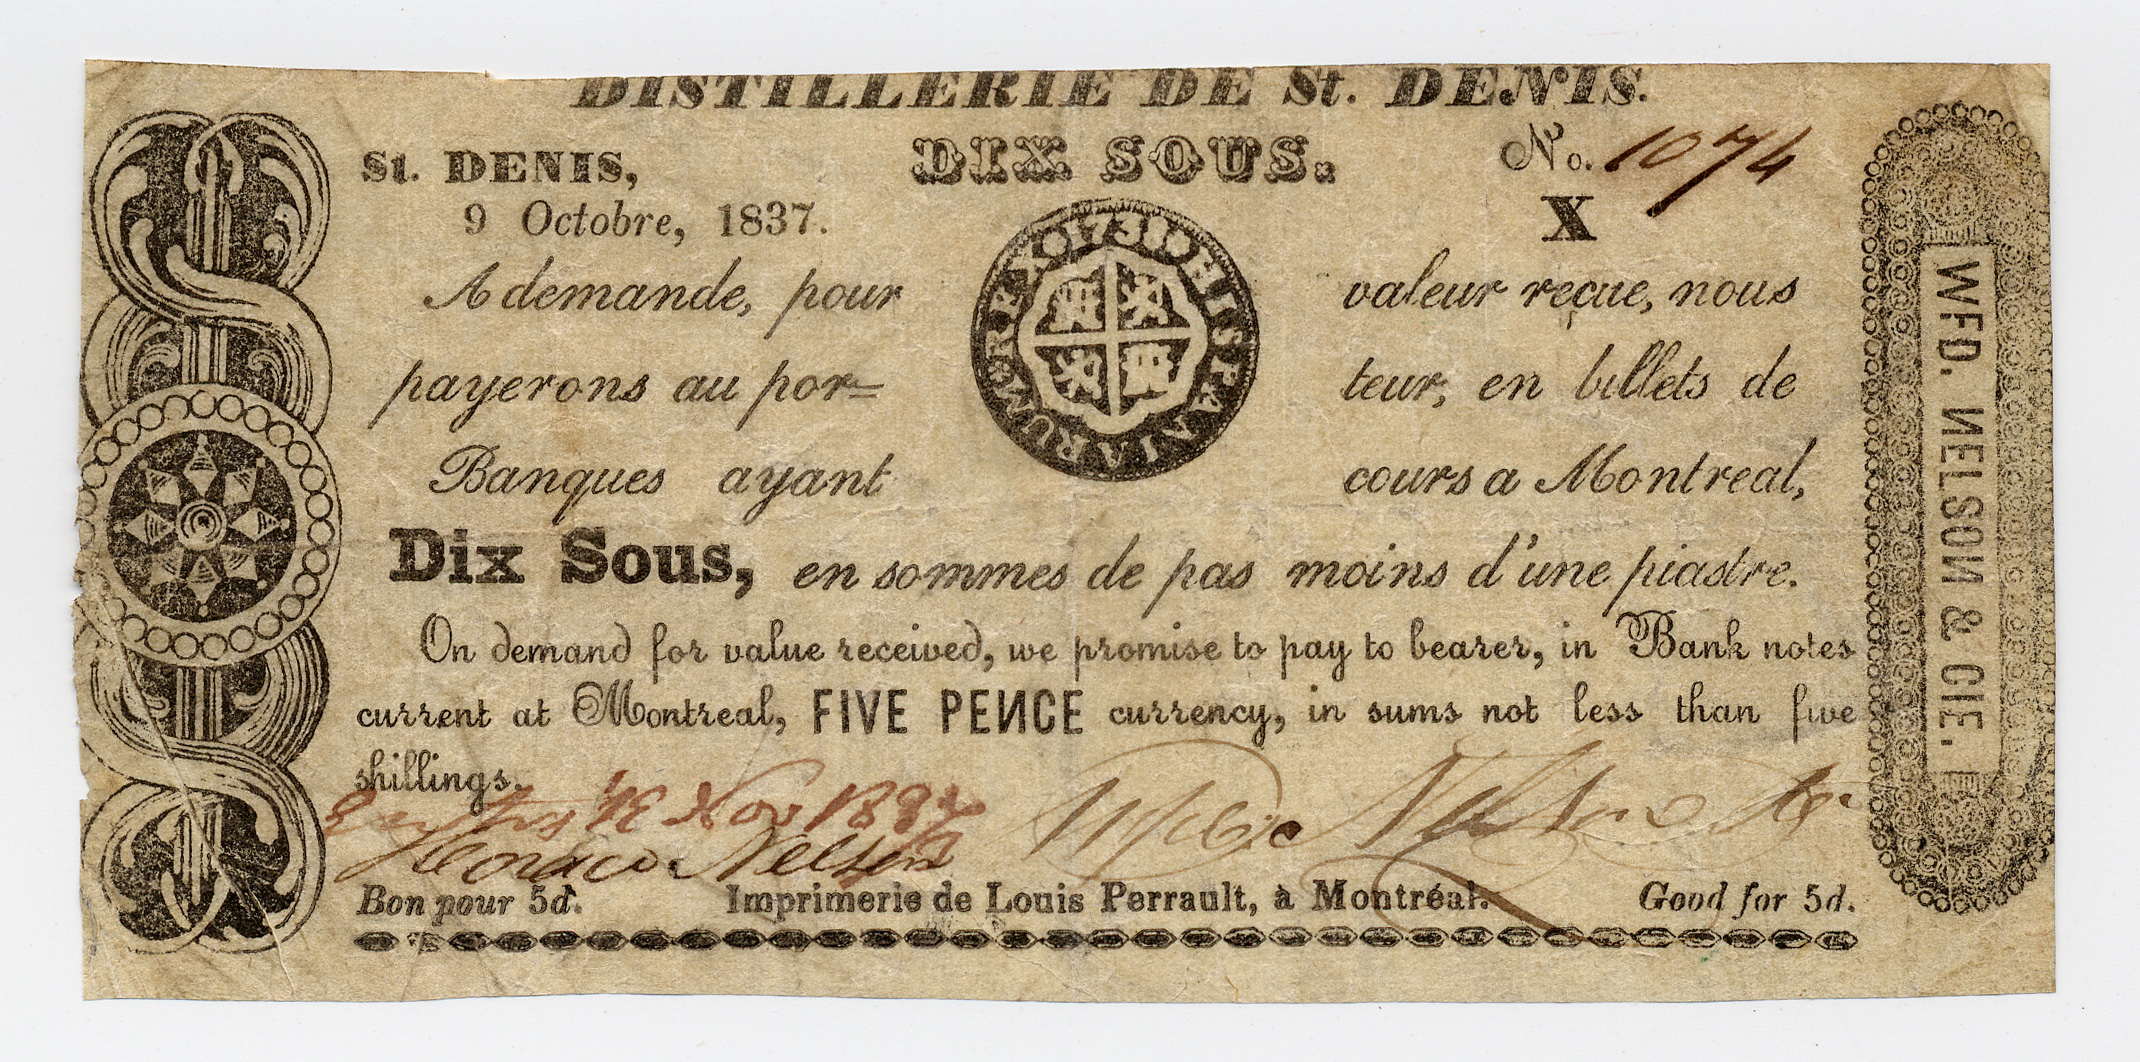 DISTILLERIE DE St. DENIS.
DIX SOUS.
No. 1074
St. DENIS,
9 Octobre, 1837.
X
1738 HISPANIARUM REX
A demande, pour valeur reçue, nous
payerons au por= teur, en billets de
Banques ayant cours a Montreal,
Dix Sous, en sommes de pas moins d'une piastre.
On demand for value received, we promise to pay to bearer, in Bank notes
current at Montreal, FIVE PENCE currency, in sums not less than five
shillings.
Nov 1837
Horace Nelson
Wfd Nelson & Co
Bon pour 5d.
Imprimerie de Louis Perrault, à Montréal.
Good for 5d.
WFD. NELSON & CIE.